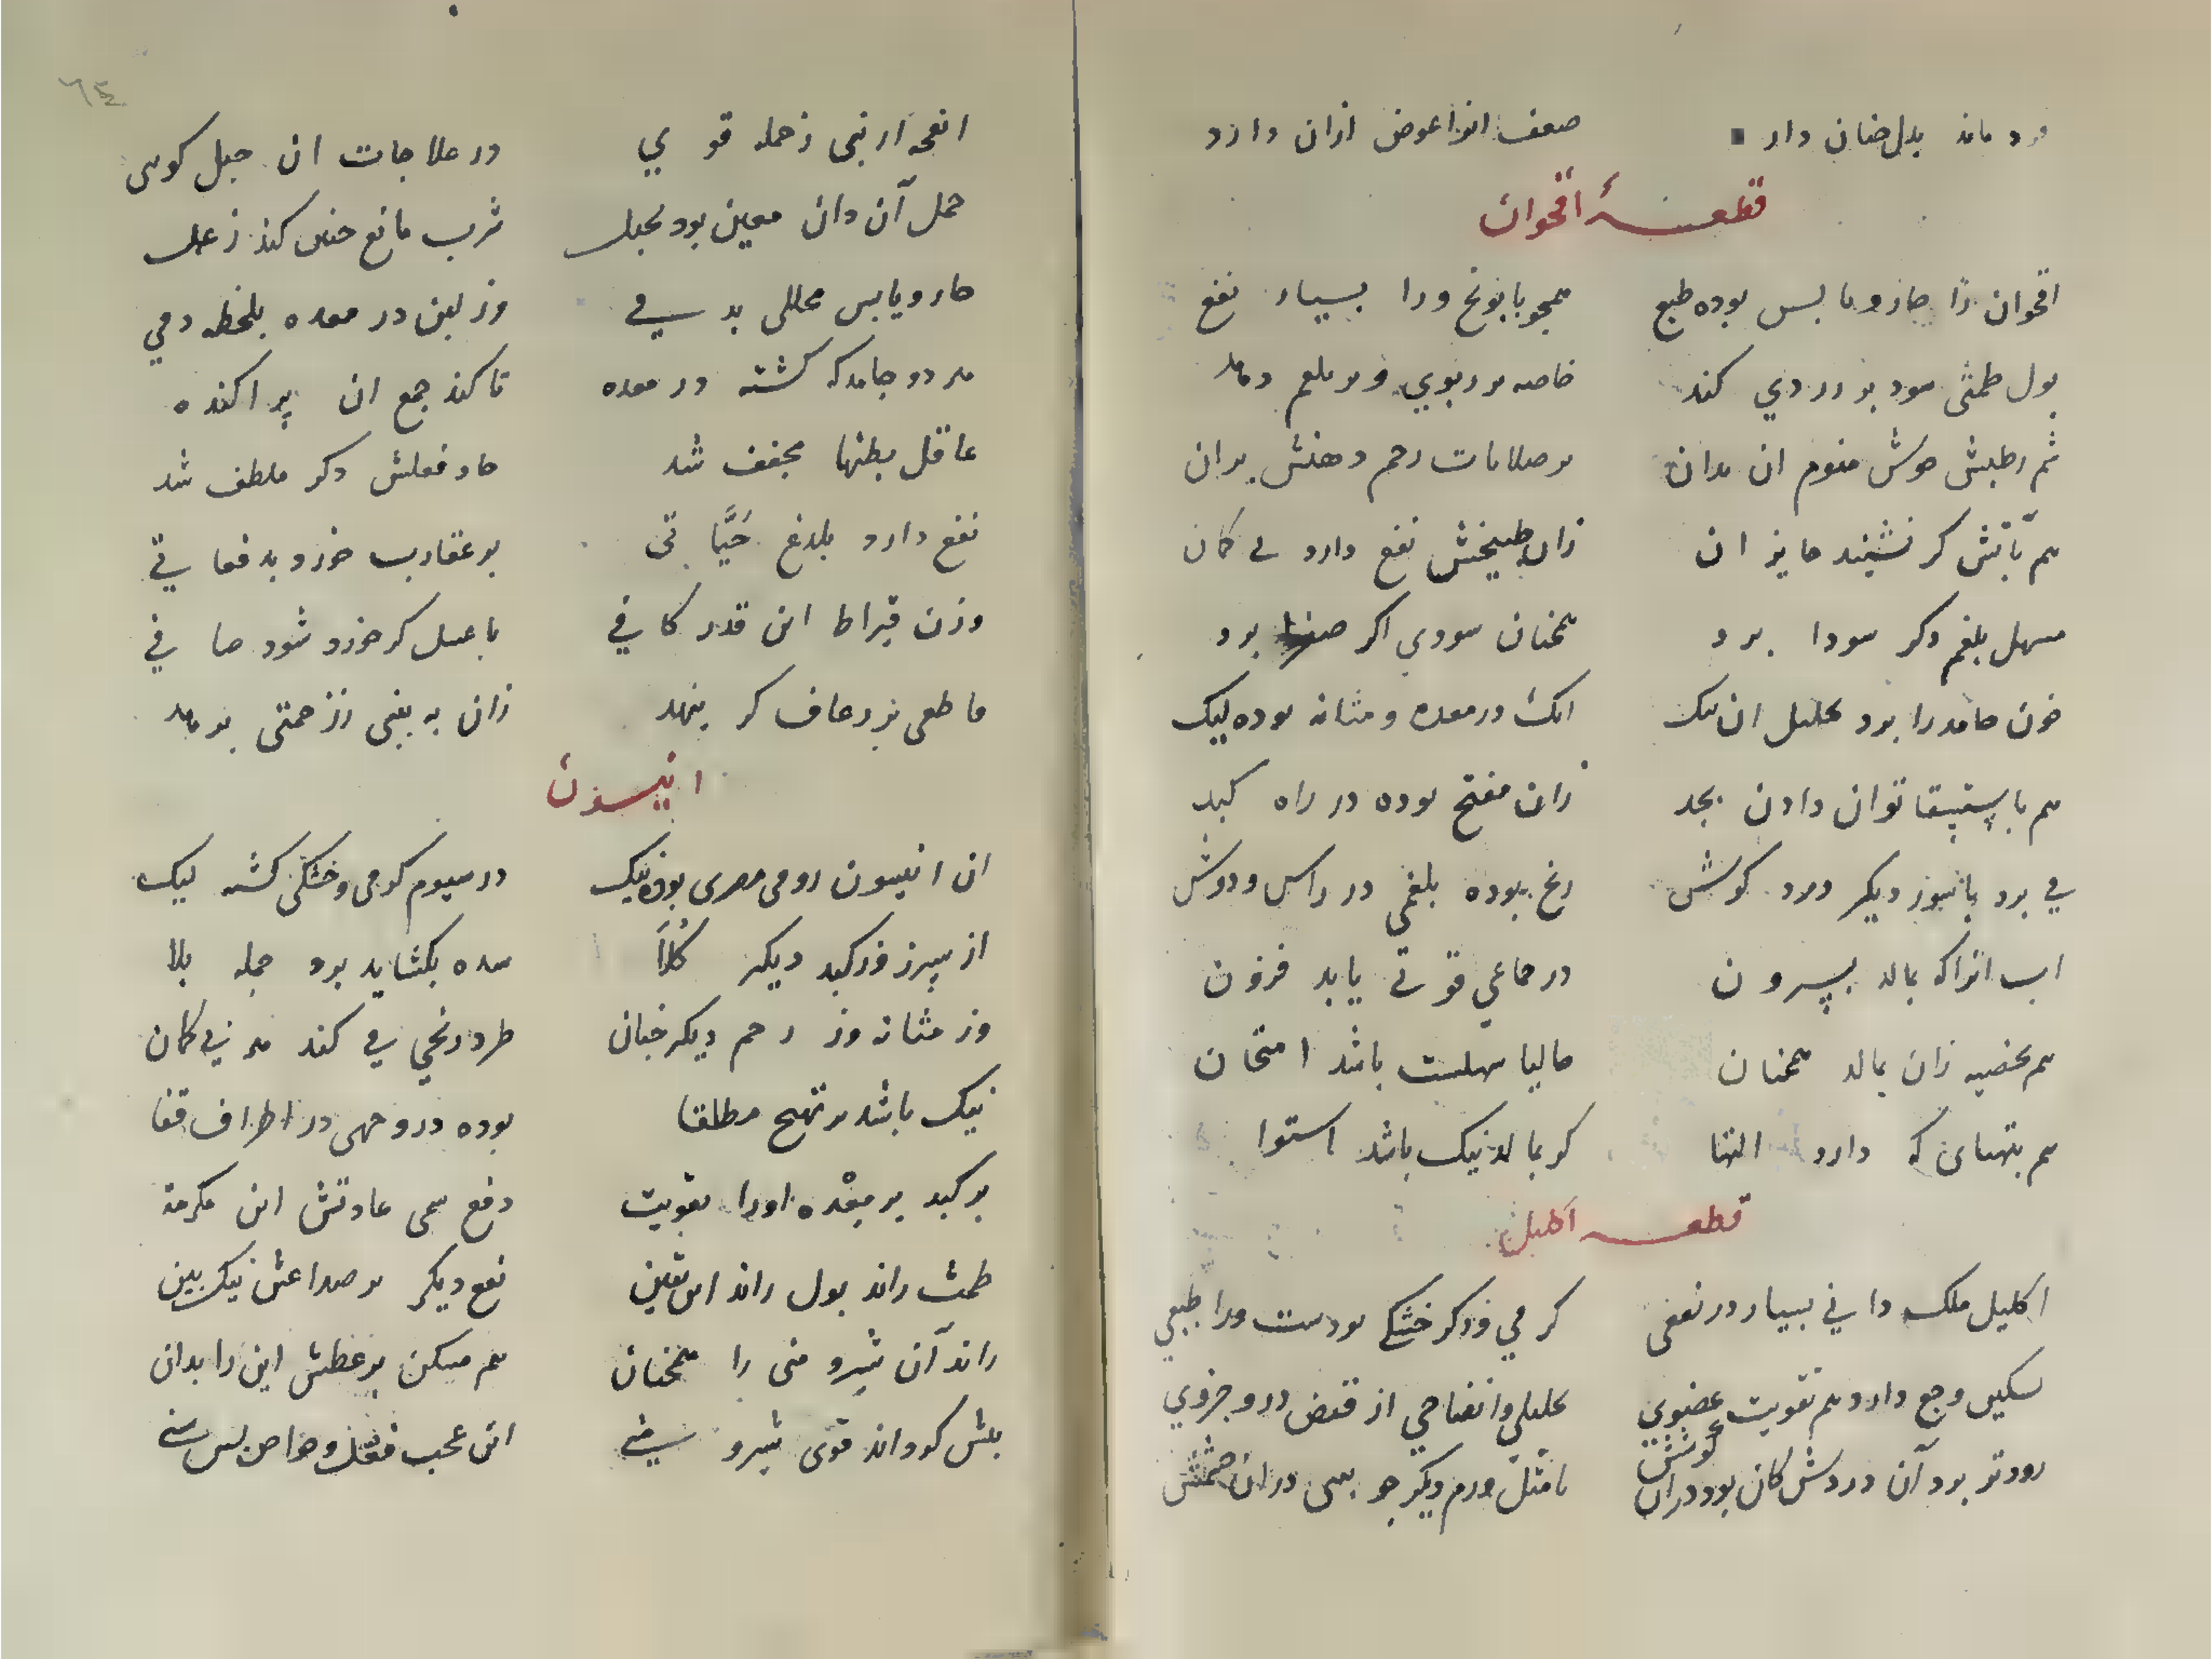 بدل چنان دار ضعف انرا عوض ازان دارد
قطعهٔ اقحوان
اقحوان را حار و یابس بوده طبع همچو بابونج ورا بسیار نفع
بول طمثی کند خاصه بر ربوی و بر بلغم دهد
رطبش منوم ان بدان بر صلابات رحم دهنش بران
هم بآبش کر نشیند حایز ان زان طبیخش نفع دارد بی کمان
مسهل بلغم دکر سودا برد همچنان سودی اکر صفرا برد
خون جامد را برد تحلیل ان نیک انک در معده و مثانه بوده لیک
هم باستسقا توان دادن بجد زان مفتح بوده در راه کبد
برد دیکر درد کوش رنج بوده بلغمی در راس و دوش
اب انرا که بمالد بیرون در جماعی قوتی یابد فزون
هم بخصیه زان بمالد همچنان حالیا سهلست باشد امتحان
هم که دارد التها کر بمالد نیک باشد استوا
قطعه اکلیل
اکلیل ملک دانی بسیار در نفعی کرمی وزکر خشکی بودست ورا طبعی
تسکین وجع دارد هم تقویت عضوی تحلیلی و انضاجی از قبض درو جزوی
زودتر برد آن دردش کان بود دران کوشش ورم دیکر دران چشمش
٦٤
انفحه ارنبی زحمله قوی در علاجات ان
حمل آن دان معین بود بحبل شرب مانع چنان کند زعمل
حار و یابس محللی بدنی وز لبن در معده بلحظه دمی
هر دو جامد که کشته در معده تا کند جمع ان پراکنده
عاقل بطنها مجفف شد حاد فعلش دکر ملطف شد
نفع دارد بلدغ حیّاتی بر عقارب خورد بدفعاتی
وزن قیراط این قدر کافی با عسل کر خورد شود صافی
قاطعی بر رعاف کر بنهد زان به بینی ز زحمتی برهد
انیسون
ان انیسون رومی مصری بود نیک در سیوم کرمی و خشکی کشته لیک
از سپرز وز کبد دیکر کُلاَ سده بکشاید برد جمله بلا
وز مثانه وز رحم دیکر چنان طرد رنجی می کند هر بی کمان
نیک باشد بر تهبج مطلقا بوده در وجهی در اطراف قفا
بر کبد بر معْده اورا تقویت دفع سمی عادتش این مکرمة
طمث راند بول راند این یقین نفع دیکر بر صداعش نیک بین
راند آن شیر و منی را همچنان هم مسکن بر عطش این را بدان
شیر و این عجب فعلش و خواص بس سنی